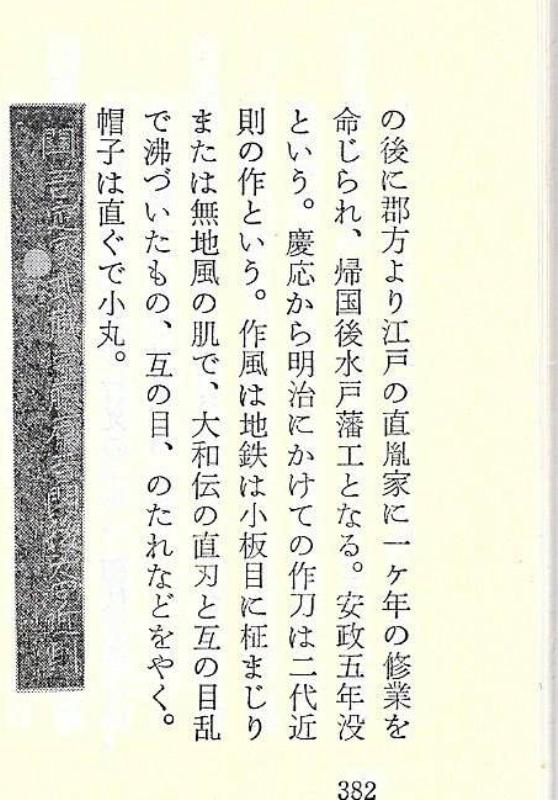 の後に郡方より江戸の直胤家に一ヶ年の修業を
命じられ、帰国後水戸藩工となる。安政五年没
という。慶応から明治にかけての作刀は二代近
則の作という。作風は地鉄は小板目に柾まじり
または無地風の肌で、大和伝の直刃と互の目乱
で沸づいたもの、互の目、のたれなどをやく。
帽子は直ぐで小丸。
382